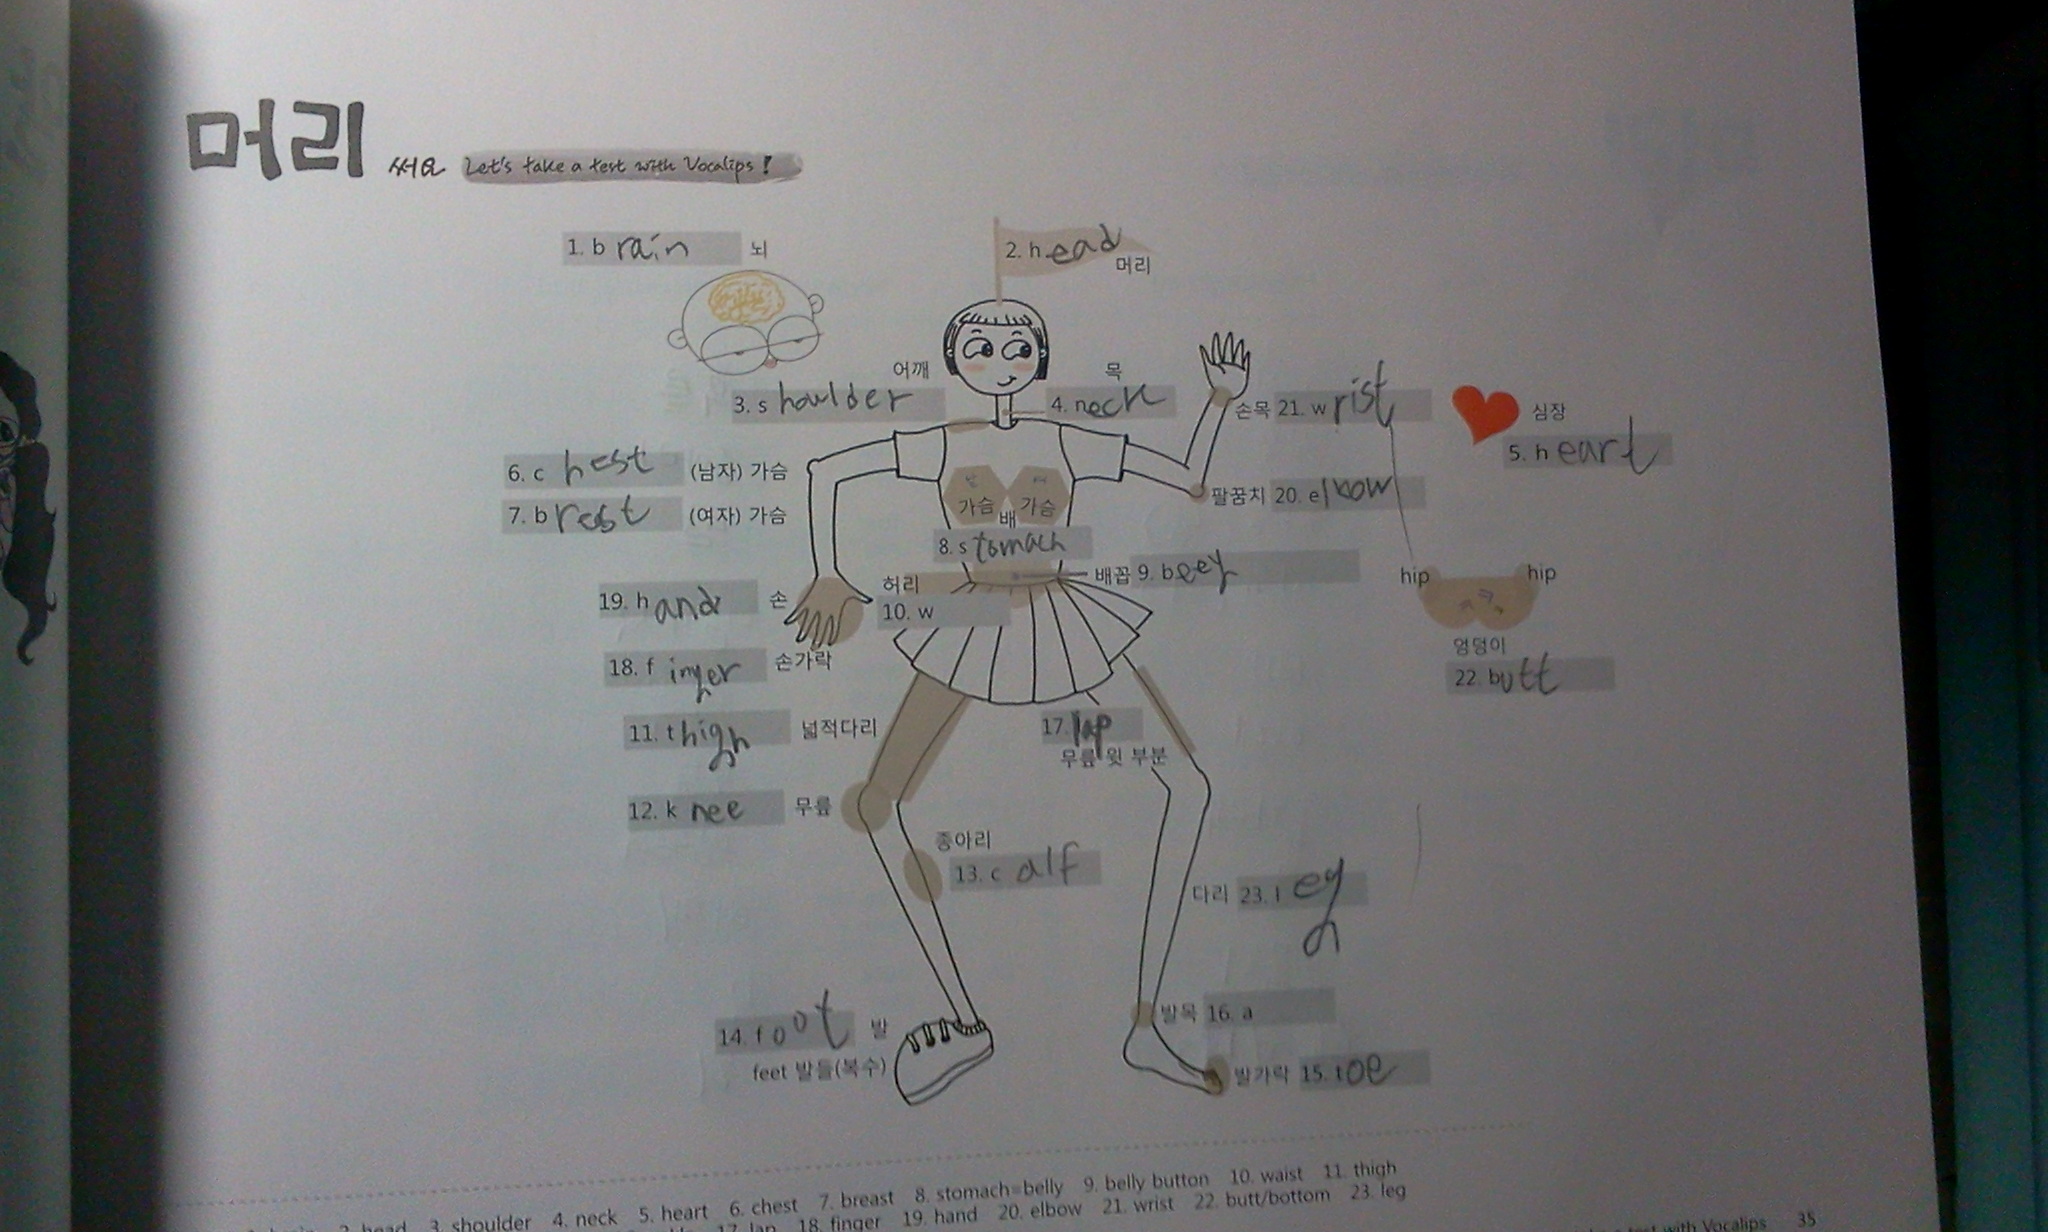 머리 써요 Let's take a test with Vocalips!
1. brain 뇌
2. head
머리
어깨
3. shoulder
목
4. neck
손목 21. wrist
심장
5. heart
6. chest (남자) 가슴
7. brest (여자) 가슴
가슴 가슴
팔꿈치 20. elbow
배
8. stomach
배꼽 9. beey
허리
10. w
hip hip
엉덩이
22. butt
19. hand 손
18. finger 손가락
11. thigh 넓적다리
17. lap
무릎 윗 부분
12. knee 무릎
종아리
13. calf
다리 23. leg
14. foot 발
feet 발들(복수)
발목 16. a
발가락 15. toe
2. head 3. shoulder 4. neck 5. heart 6. chest 7. breast 8. stomach=belly 9. belly button 10. waist 11. thigh
17. lap 18. finger 19. hand 20. elbow 21. wrist 22. butt/bottom 23. leg
a test with Vocalips 35